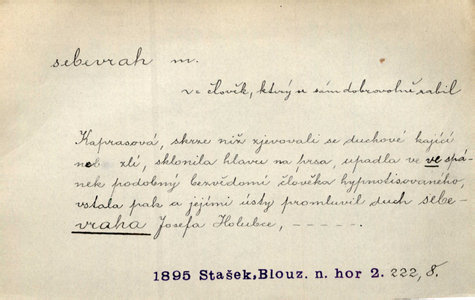 sebevrah m.
člověk, který se sám dobrovolně zabil
Kaprasová, skrze niž zjevovali se duchové kající
neb zlí, sklonila hlavu na prsa, upadla ve ve spá-
nek podobný bezvědomí člověka hypnotisovaného,
vstala pak a jejími ústy promluvil duch sebe-
vraha Josefa Holubce, - - - - -.
1895 Stašek, Blouz. n. hor 2. 222, 8.